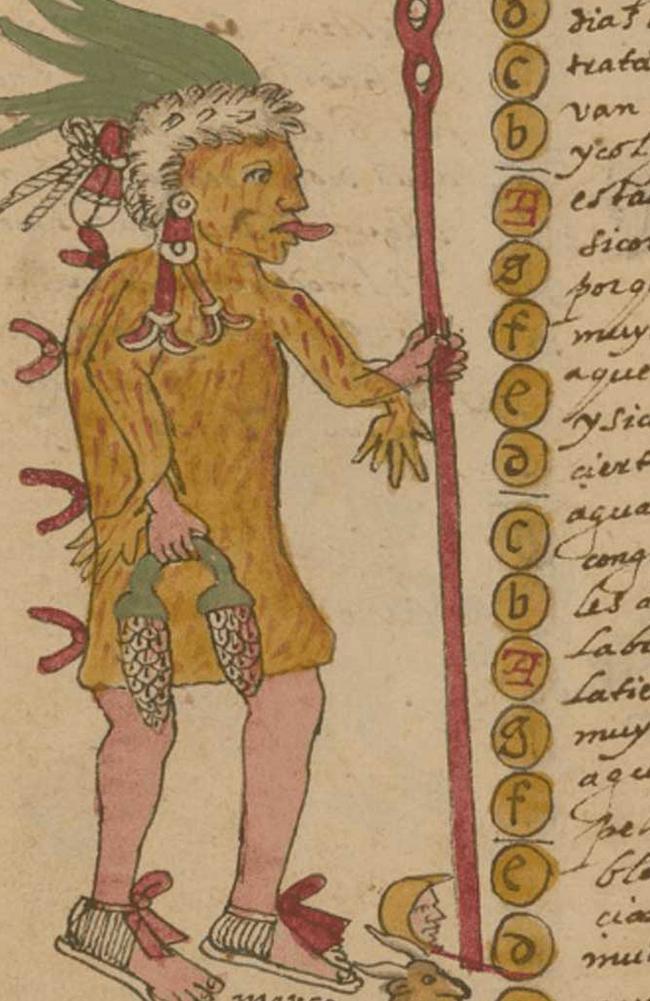 d
c
b
A
g
f
e
d
c
b
A
g
f
e
d
trata
van
ycol
esta
sicor
porq
muy
aque
ysic
ciert
agua
cong
les a
labo
latie
muy
aqu
pe
ble
cia
março